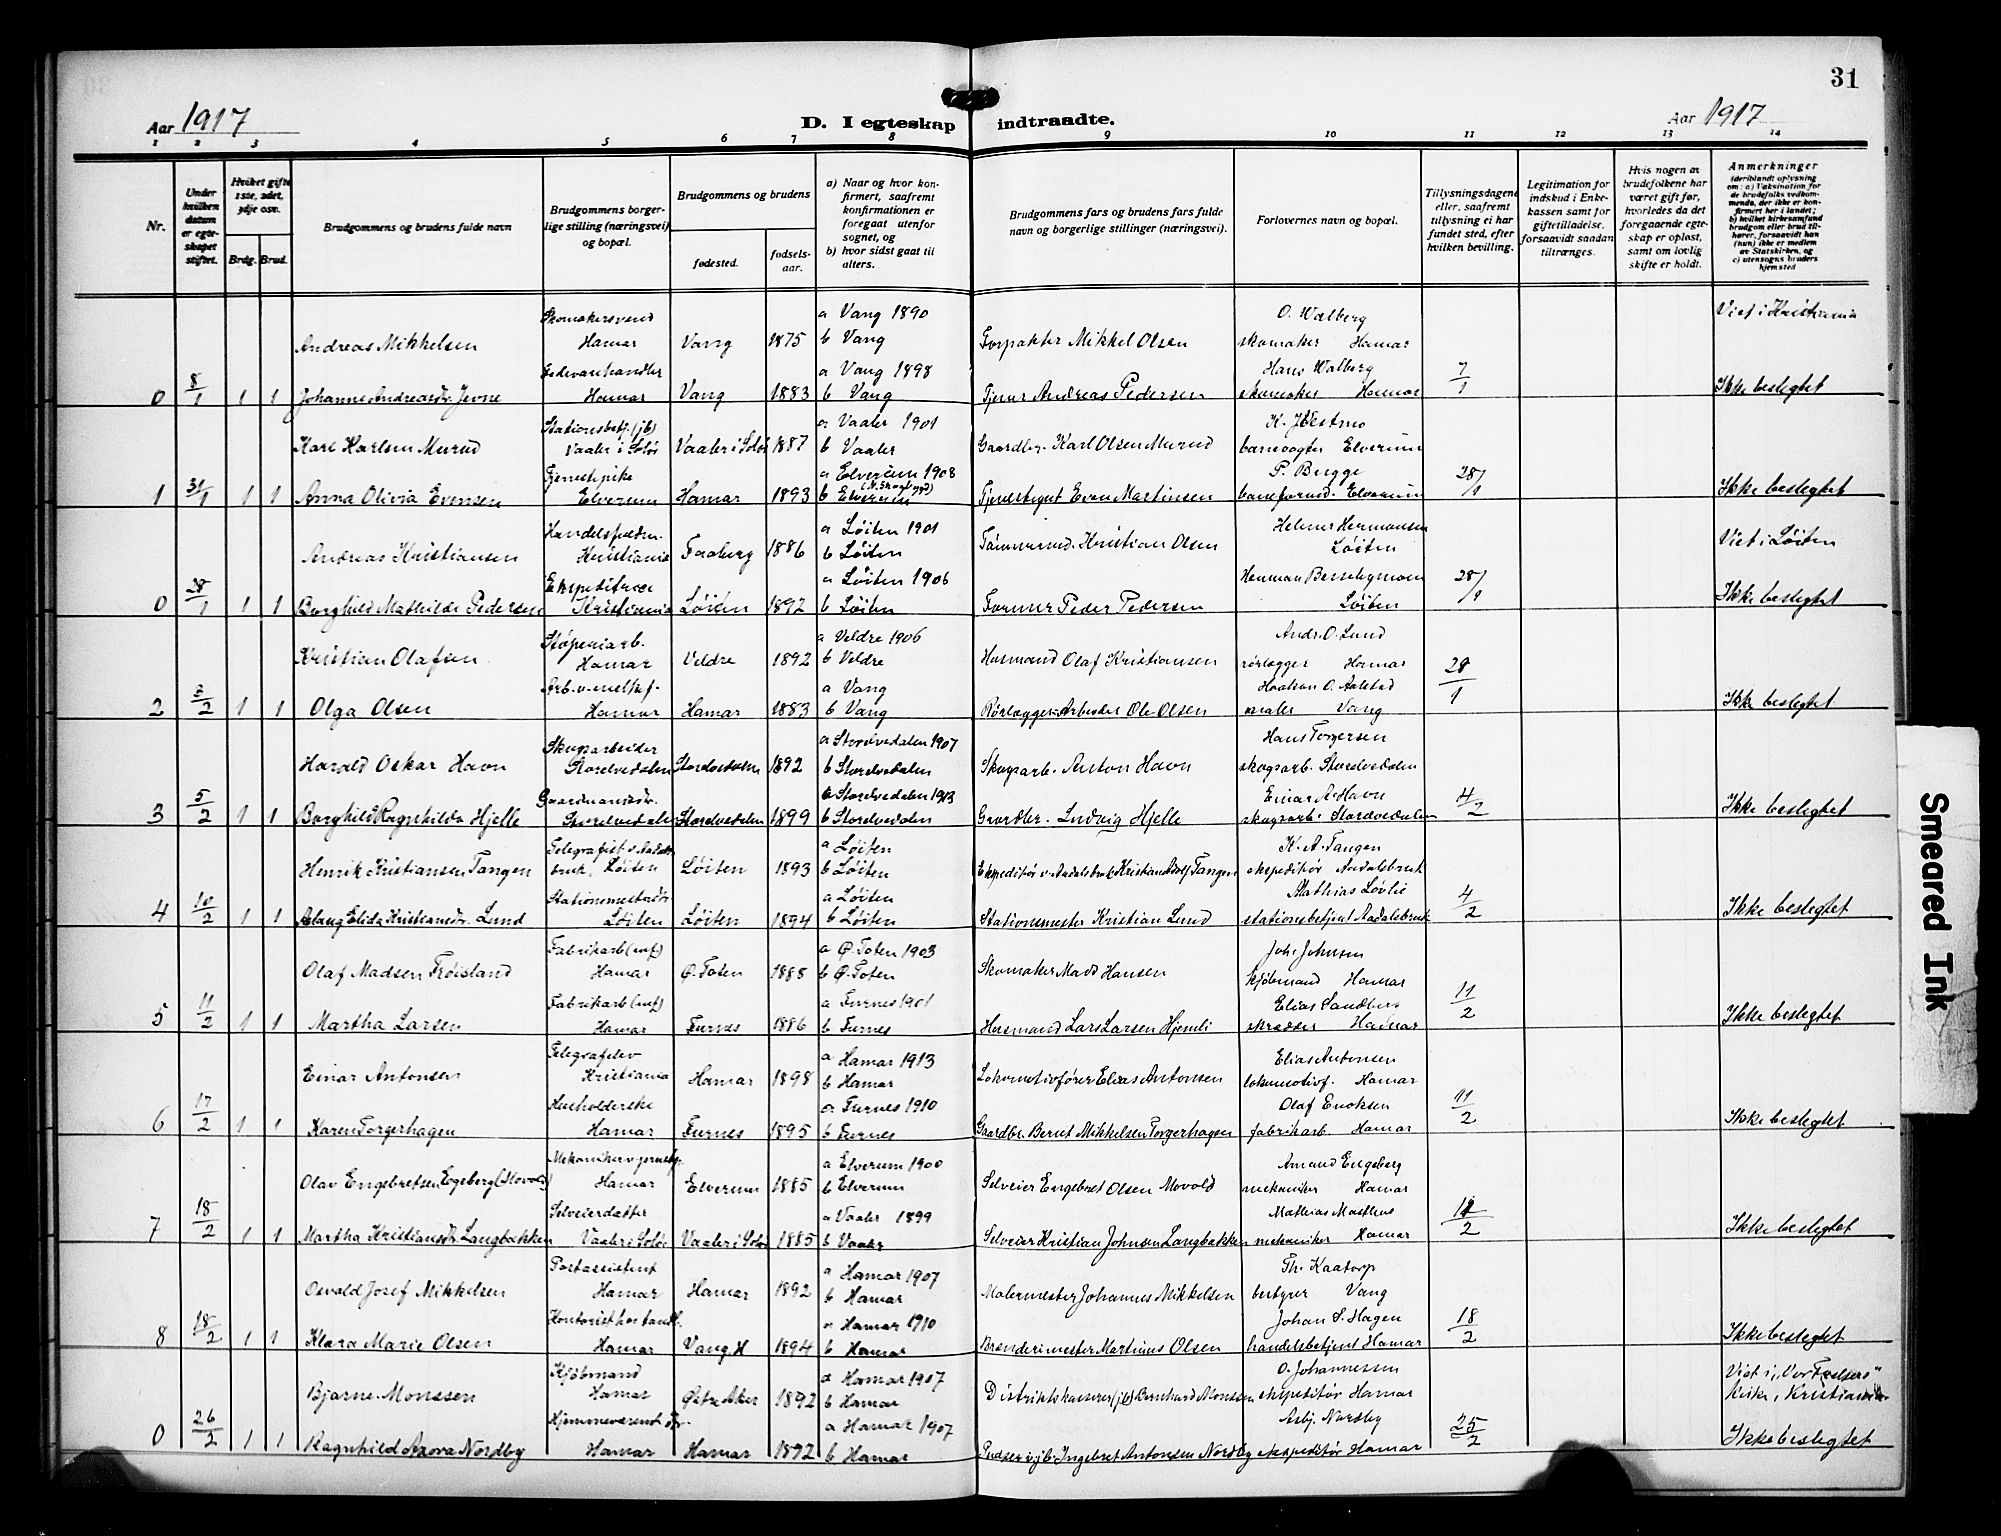 31
Aar 1917
D. I egteskap indtraadte.
Aar 1917
1 2 3 4 5 6 7 8 9 10 11 12 13 14
Nr.
Under hvilken datum er egteskapet stiftet.
Hvilket gifte 1ste, 2det, 3dje osv.
Brdg. Brud.
Brudgommens og brudens fulde navn
Brudgommens borgerlige stilling (næringsvei) og bopæl.
Brudgommens og brudens
fødested.
fødselsaar.
a) Naar og hvor konfirmert, saafremt konfirmationen er foregaat utenfor sognet, og
b) hvor sidst gaat til alters.
Brudgommens fars og brudens fars fulde navn og borgerlige stillinger (næringsvei).
Forlovernes navn og bopæl.
Tillysningsdagene eller, saafremt tillysning ei har fundet sted, efter hvilken bevilling.
Legitimation for indskud i Enkekassen samt for giftetilladelse, forsaavidt saadan tiltrænges.
Hvis nogen av brudefolkene har været gift før, hvorledes da det foregaaende egteskap er opløst, samt om lovlig skifte er holdt.
Anmerkninger (deriblandt oplysning om: a) Vaksination for de brudefolks vedkommende, der ikke er konfirmert her i landet; b) hvilket kirkesamfund brudgom eller brud tilhører, forsaavidt han (hun) ikke er medlem av Statskirken, og c) utensogns bruders hjemsted
Skomakersvend a Vang 1890 O. Walberg Viet i Kristiania
Andreas Mikkelsen Hamar Vang 1875 b Vang Forpakter Mikkel Olsen skomaker Hamar
Fedevarehandler a Vang 1898 Hans Walberg
0 8/1 1 1 Johanne Andreasdr. Jevne Hamar Vang 1883 b Vang Tjener Andreas Pedersen skomaker Hamar 7/1 Ikke beslegtet
Stationsbetj. (jb) a Vaaler 1901 K. Jøestmo
Karl Karlsen Murud Vaaler i Solør Vaaler i Solør 1887 b Vaaler Gaardbr. Karl Olsen Murud banevogter Elverum
Tjenestepike a Elverum 1908 P. Bugge
1 31/1 1 1 Anna Olivia Evensen Elverum Hamar 1893 b Elverum Tjenestegut Even Martinsen baneformd. Elverum 28/1 Ikke beslegtet
a Løiten 1901 Helmer Hermansen Viet i Løiten
Andreas Kristiansen Kristiania Faaberg 1886 b Løiten Tømmermd. Kristian Olsen Løiten
Ekspeditrice a Løiten 1906 Herman
0 28/1 1 1 Borghild Mathilde Pedersen Kristiania Løiten 1892 b Løiten Former Peder Pedersen Løiten 28/1 Ikke beslegtet
Støperiarb. a Veldre 1906 Andr. O. Lund
Kristian Olafsen Hamar Veldre 1892 b Veldre Husmand Olaf Kristiansen rørlægger Hamar
Arb. v. meltef. a Vang Haakon O. Aalstad
2 3/2 1 1 Olga Olsen Hamar Hamar 1883 b Vang Rørlægger-Arbeider Ole Olsen maler Vang 28/1 Ikke beslegtet
Skogsarbeider a Storelvedalen 1907 Hans Torgersen
Harald Oskar Havn Storelvedalen Storelvedalen 1892 b Storelvedalen Skogsarb. Anton Havn skogsarb. Storelvedalen
Gaardmannsdtr. a Storelvedalen 1913 Einar A. Havn
3 5/2 1 1 Borghild Ragnhilda Hjelle Storelvedalen Storelvedalen 1899 b Storelvedalen Gaardbr. Ludvig Hjelle skogsarb. Storelvedalen 4/2 Ikke beslegtet
Telegrafist v. Aadals- a Løiten K. A. Tangen
Henrik Kristiansen Tangen bruk, Løiten Løiten 1893 b Løiten Ekspeditør v. Aadalsbruk Kristian Adolf Tangen ekspeditør Aadalsbruk
Stationsmestersdtr. a Løiten Mathias Løvlie
4 10/2 1 1 Aslaug Elida Kristiansdr. Lund Løiten Løiten 1894 b Løiten Stationsmester Kristian Lund stationsbetjent Aadalsbruk 4/2 Ikke beslegtet
Fabrikarb (mf) a Ø. Toten 1903 Joh. Johnsen
Olaf Madsen Frøisland Hamar Ø. Toten 1888 b Ø. Toten Skomaker Mads Hansen kjøbmand Hamar
Fabrikarb (mf) a Furnes 1901 Elias Sandberg
5 11/2 1 1 Martha Larsen Hamar Furnes 1886 b Furnes Husmand Lars Larsen Hjemli skrædder Hamar 11/2 Ikke beslegtet
Telegrafelev a Hamar 1913 Elias Antonsen
Einar Antonsen Kristiania Hamar 1898 b Hamar Lokomotivfører Elias Antonsen lokomotivf. Hamar
Husholderske a Furnes 1910 Olaf Enoksen
6 17/2 1 1 Karen Torgerhagen Hamar Furnes 1895 b Furnes Gaardbr. Bernt Mikkelsen Torgerhagen fabrikarb. Hamar 11/2 Ikke beslegtet
a Elverum 1900 Amand Engeberg
Olav Engebretsen Engeberg (Movold) Hamar Elverum 1885 b Elverum Selveier Engebret Olsen Movold mekaniker Hamar
Selveierdatter a Vaaler 1899 Mathias
7 18/2 1 1 Martha Kristiansdr. Langbakken Vaaler i Solør Vaaler i Solør 1885 b Vaaler Selveier Kristian Johnsen Langbakken mekaniker Hamar 12/2 Ikke beslegtet
Postassistent a Hamar 1907 Th. Kaatorp
Osvald Josef Mikkelsen Hamar Hamar 1892 b Hamar Malermester Johannes Mikkelsen bestyrer Vang
a Hamar 1910 Johan S. Hagen
8 18/2 1 1 Klara Marie Olsen Hamar Vang H 1894 b Hamar Brænderimester Martinus Olsen handelsbetjent Hamar 18/2 Ikke beslegtet
Kjøbmand a Hamar 1907 O. Johannessen Viet i „Vor Frelsers"
Bjarne Monssen Hamar Østre Aker 1892 b Hamar Distriktskasserer (jb) Bernhard Monssen ekspeditør Hamar Kirke, Kristiania
Hjemmeværende dtr. a Hamar 1907 Asbj. Nordby
0 26/2 1 1 Ragnhild Arova Nordby Hamar Hamar 1892 b Hamar Pudser v. jb. Ingebret Antonsen Nordby ekspeditør Hamar 25/2 Ikke beslegtet
Smeared Ink